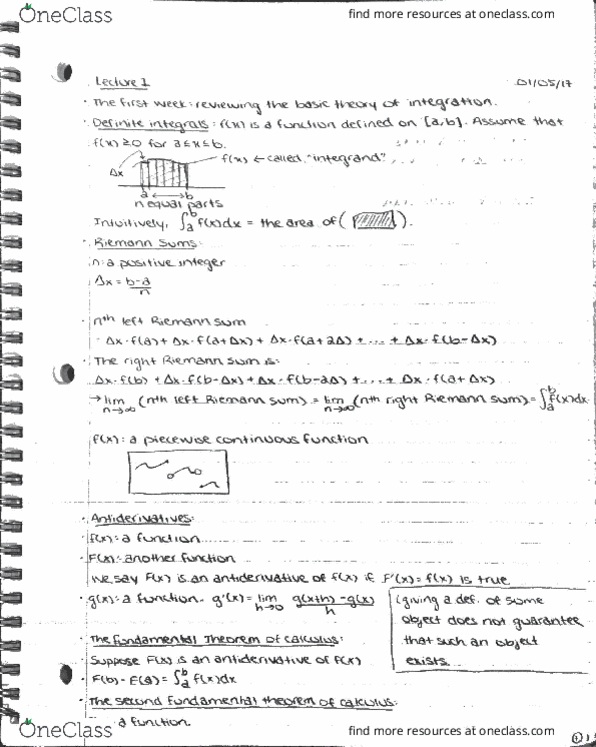 OneClass
find more resources at oneclass.com
Lecture 1
01/05/17
· The first week: reviewing the basic theory of integration.
· Definite integrals: f(x) is a function defined on [a,b]. Assume that
f(x) ≥ 0 for a ≤ x ≤ b.
f(x) ← called "integrand"
Δx
a ↔ b
n equal parts
Intuitively, ∫ₐᵇ f(x)dx = the area of ( ).
· Riemann Sums:
n: a positive integer
Δx = b-a/n
· nth left Riemann sum
· Δx·f(a) + Δx·f(a+Δx) + Δx·f(a+2Δ) + ... + Δx·f(b-Δx)
· The right Riemann sum is:
Δx·f(b) + Δx·f(b-Δx) + Δx·f(b-2Δ) + ... + Δx·f(a+Δx)
→ lim n→∞ (nth left Riemann sum) = lim n→∞ (nth right Riemann sum) = ∫ₐᵇ f(x)dx
f(x): a piecewise continuous function
· Antiderivatives:
· f(x): a function
· F(x): another function
We say F(x) is an antiderivative of f(x) if F'(x) = f(x) is true
· g(x): a function. g'(x) = lim h→0 g(x+h)-g(x)/h
(giving a def. of some
object does not guarantee
that such an object
exists.
· The Fundamental Theorem of Calculus:
Suppose F(x) is an antiderivative of f(x)
· F(b) - F(a) = ∫ₐᵇ f(x)dx
· The second fundamental theorem of calculus:
a function.
OneClass
find more resources at oneclass.com